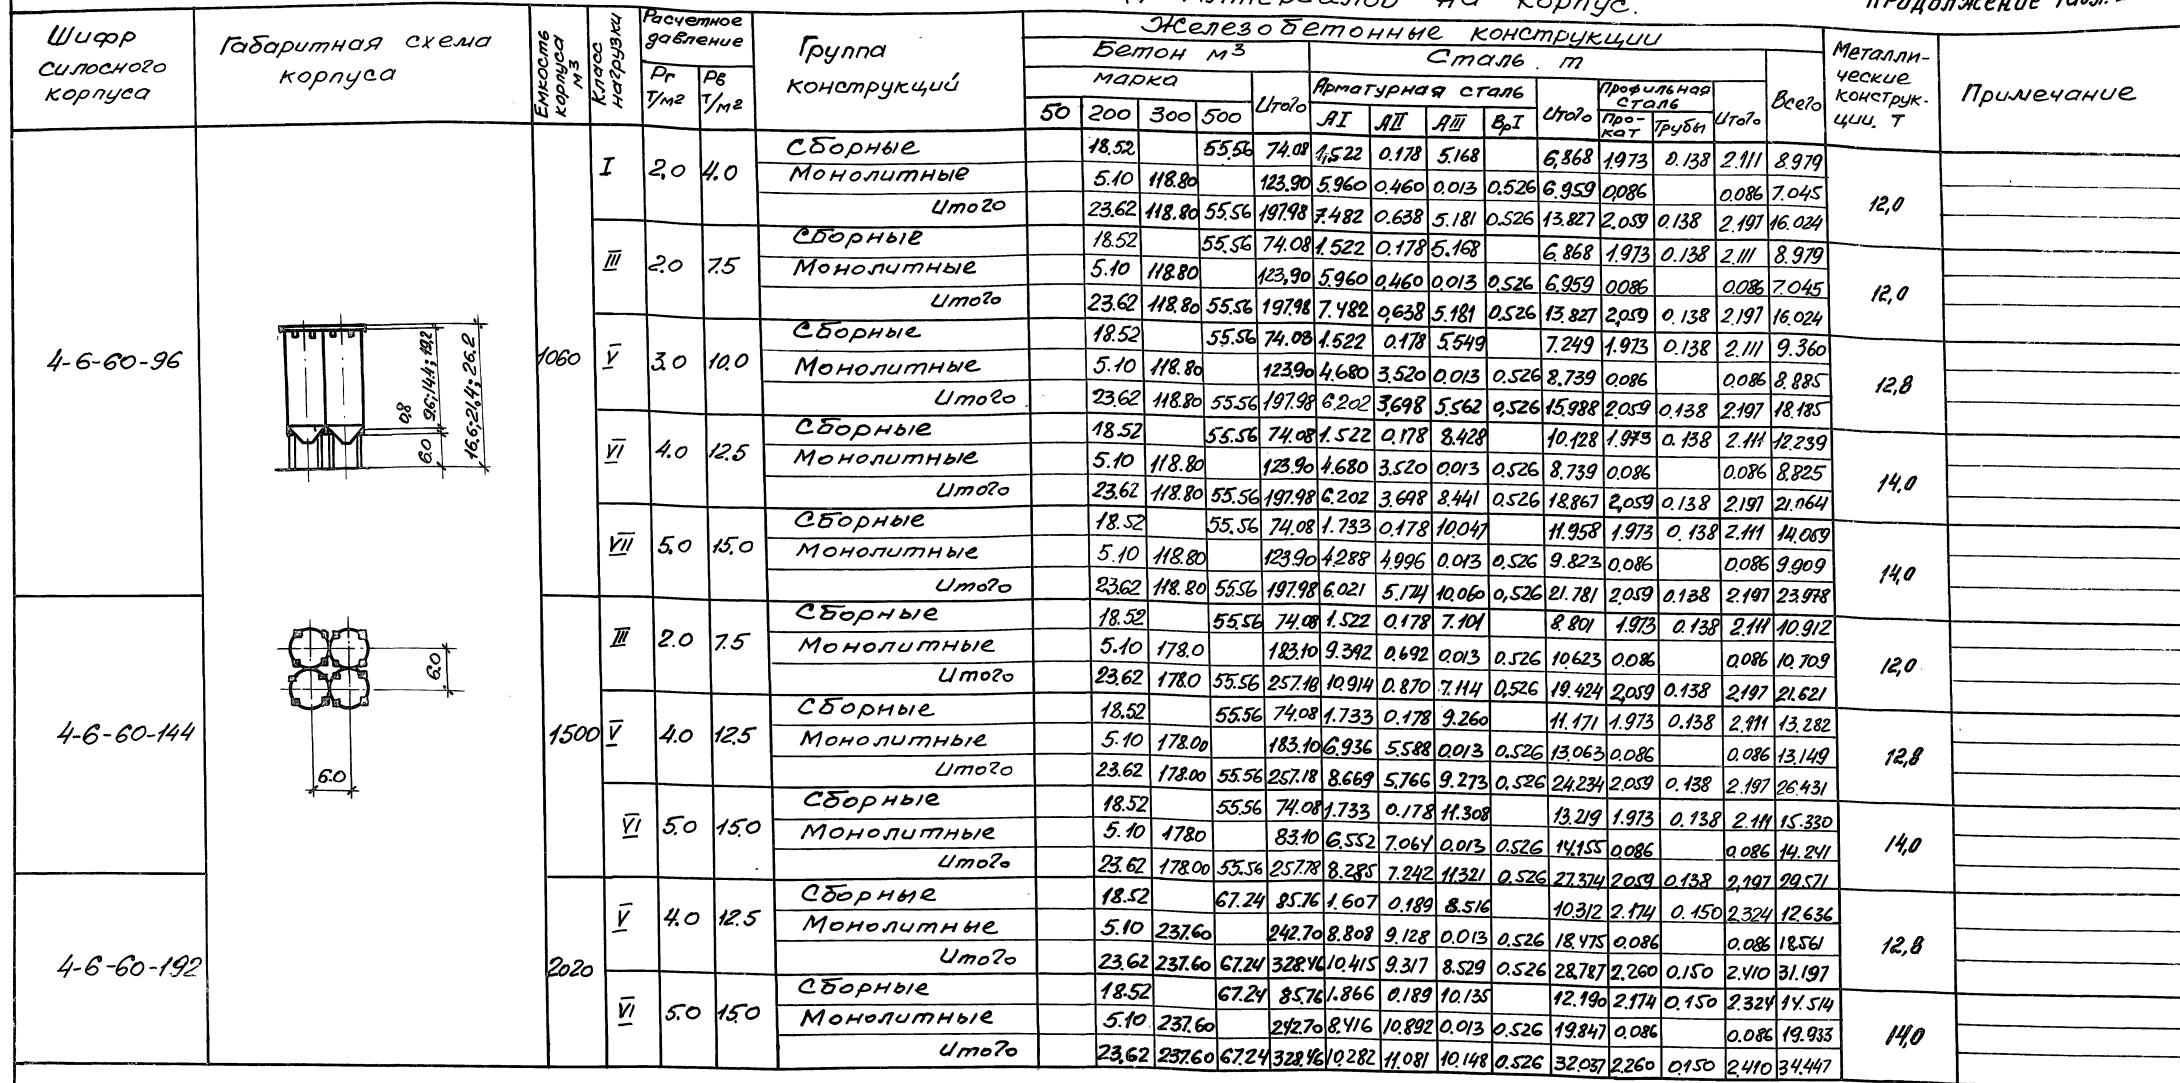 на корпус.
Шифр силосного корпуса
Габаритная схема корпуса
Емкость корпуса м³
Класс нагрузки
Расчетное давление
Рг т/м²
Рв т/м²
Группа конструкций
Железобетонные конструкции
Бетон м³
Сталь. т
марка
50 200 300 500 Итого
Арматурная сталь
АI АII АIII ВрI Итого
Профильная сталь
Про-кат Трубы Итого
Всего
Металли-ческие конструк-ции. Т
Примечание
4-6-60-96
1060
I 2,0 4.0 12,0
Сборные 18.52 55.56 74.08 1,522 0.178 5.168 6,868 1.973 0.138 2.111 8.979
Монолитные 5.10 118.80 123.90 5.960 0,460 0,013 0,526 6.959 0,086 0.086 7.045
Итого 23.62 118.80 55.56 197.98 7.482 0.638 5.181 0.526 13.827 2.059 0.138 2.197 16.024
III 2.0 7.5 12,0
Сборные 18.52 55.56 74.08 1.522 0.178 5.168 6.868 1.973 0.138 2.111 8.979
Монолитные 5.10 118.80 123,90 5.960 0,460 0.013 0.526 6.959 0.086 0.086 7.045
Итого 23.62 118.80 55.56 197.98 7.482 0,638 5.181 0.526 13.827 2,059 0.138 2.197 16.024
V 3.0 10.0 12,8
Сборные 18.52 55.56 74.08 1.522 0.178 5.549 7.249 1.973 0.138 2.111 9.360
Монолитные 5.10 118.80 123.90 4.680 3.520 0.013 0.526 8.739 0.086 0.086 8.885
Итого 23.62 118.80 55.56 197.98 6.202 3,698 5.562 0,526 15.988 2.059 0.138 2.197 18.185
VI 4.0 12.5 14.0
Сборные 18.52 55.56 74.08 1.522 0.178 8.428 10.128 1.973 0.138 2.111 12.239
Монолитные 5.10 118.80 123.90 4.680 3.520 0.013 0.526 8.739 0.086 0.086 8.825
Итого 23.62 118.80 55.56 197.98 6.202 3.698 8.441 0,526 18.867 2,059 0.138 2.197 21.064
VII 5.0 15.0 14,0
Сборные 18.52 55.56 74.08 1.733 0.178 10.047 11.958 1.973 0.138 2.111 14.069
Монолитные 5.10 118.80 123.90 4.288 4.996 0.013 0.526 9.823 0.086 0.086 9.909
Итого 23.62 118.80 55.56 197.98 6.021 5.174 10.060 0,526 21.781 2.059 0.138 2.197 23.978
4-6-60-144
1500
III 2.0 7.5 12,0
Сборные 18.52 55.56 74.08 1.522 0.178 7.101 8.801 1.973 0.138 2.111 10.912
Монолитные 5.10 178.0 183.10 9.392 0.692 0.013 0.526 10.623 0.086 0,086 10.709
Итого 23.62 178.0 55.56 257.18 10.914 0.870 7.114 0,526 19.424 2,059 0.138 2.197 21.621
V 4.0 12.5 12,8
Сборные 18.52 55.56 74.08 1.733 0.178 9.260 11.171 1.973 0.138 2.111 13.282
Монолитные 5.10 178.00 183.10 6.936 5.588 0.013 0.526 13.063 0.086 0.086 13.149
Итого 23.62 178.00 55.56 257.18 8.669 5,766 9.273 0,526 24.234 2.059 0.138 2.197 26.431
VI 5.0 15.0 14,0
Сборные 18.52 55.56 74.08 1.733 0.178 11.308 13.219 1.973 0.138 2.111 15.330
Монолитные 5.10 178.0 83.10 6.552 7.064 0.013 0.526 14.155 0.086 0.086 14.241
Итого 23.62 178.00 55.56 257.78 8.285 7.242 11.321 0.526 27.374 2.059 0.138 2,197 29.571
4-6-60-192
2020
V 4.0 12.5 12,8
Сборные 18.52 67.24 85.76 1.607 0.189 8.516 10.312 2.174 0.150 2.324 12.636
Монолитные 5.10 237.60 242.70 8.808 9.128 0.013 0.526 18.475 0.086 0.086 18.561
Итого 23.62 237.60 67.24 328.46 10.415 9.317 8.529 0.526 28.787 2.260 0.150 2.410 31.197
VI 5.0 15.0 14,0
Сборные 18.52 67.24 85.76 1.866 0.189 10.135 12.190 2.174 0.150 2.324 14.514
Монолитные 5.10 237.60 242.70 8.416 10.892 0.013 0.526 19.847 0.086 0.086 19.933
Итого 23,62 237.60 67.24 328.46 10.282 11.081 10.148 0.526 32.037 2.260 0.150 2.410 34.447
0,8
9.6; 14.4; 19.2
6.0
16.6; 21.4; 26.2
6.0
6.0